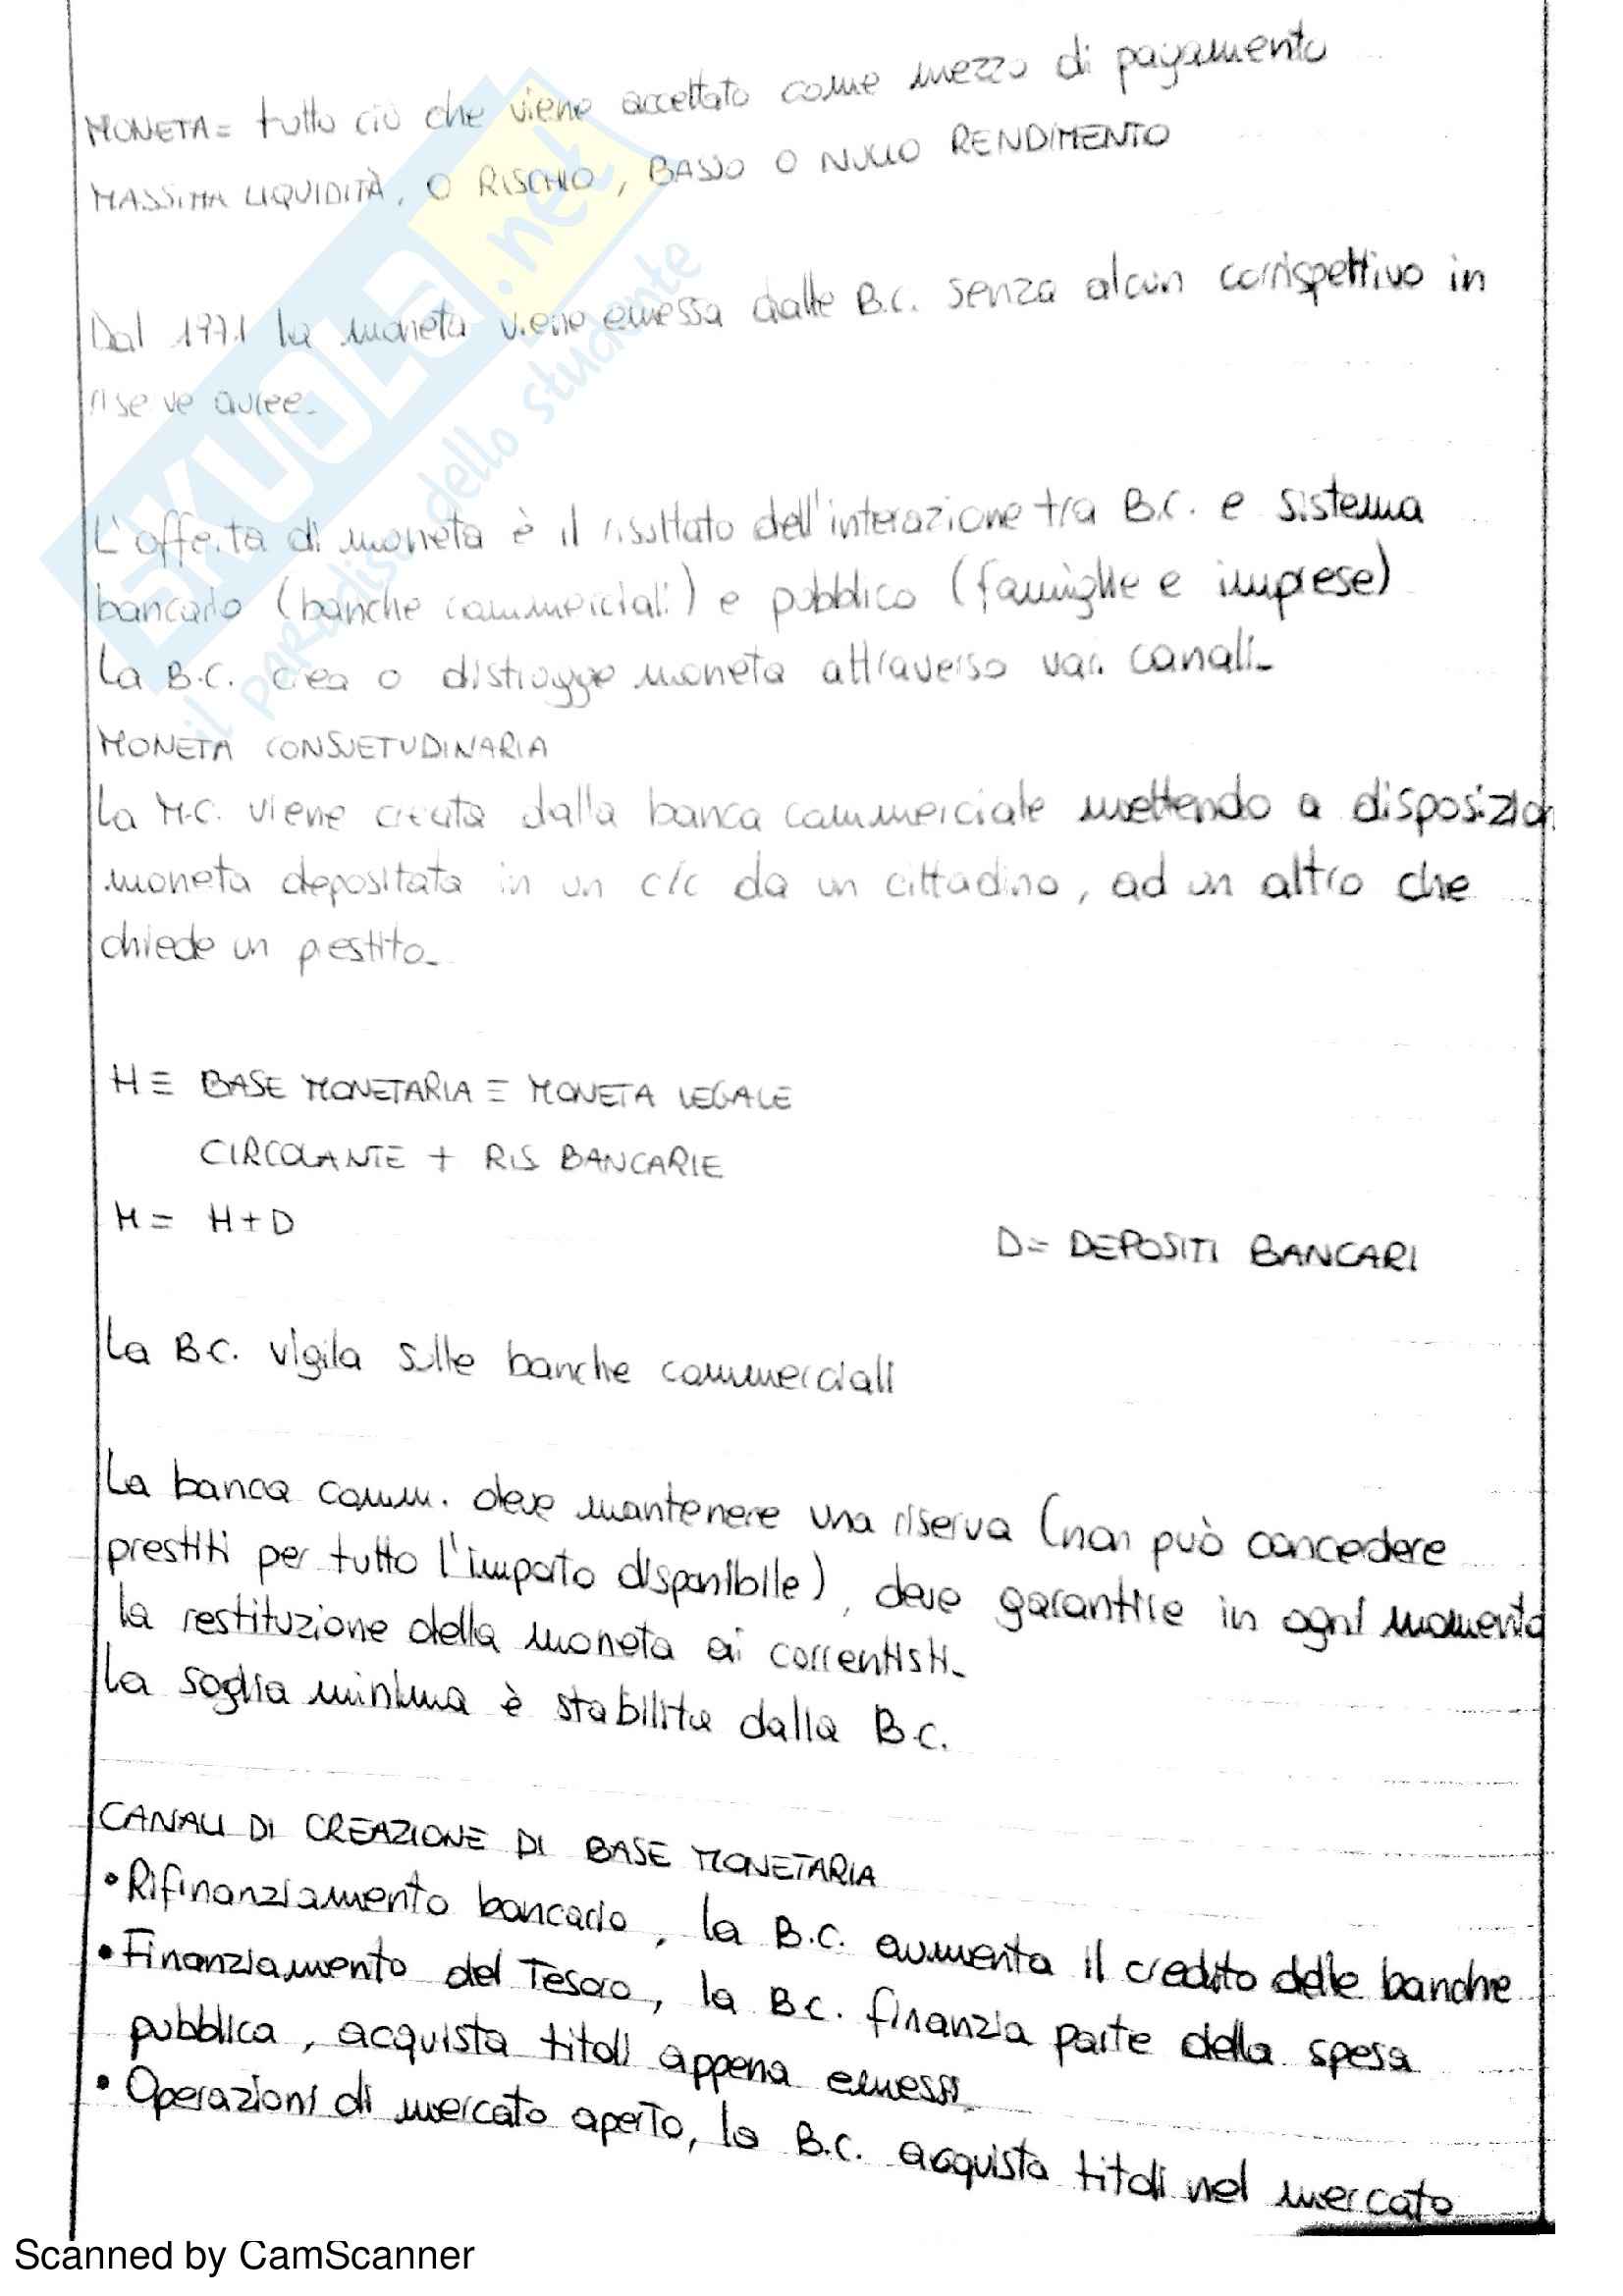 MONETA = tutto ciò che viene accettato come mezzo di pagamento
MASSIMA LIQUIDITÀ, O RISCHIO, BASSO O NULLO RENDIMENTO
Dal 1971 la moneta viene emessa dalle B.C. senza alcun corrispettivo in
riserve auree.
L'offerta di moneta è il risultato dell'interazione tra B.C. e sistema
bancario (banche commerciali) e pubblico (famiglie e imprese)
La B.C. crea o distrugge moneta attraverso vari canali.
MONETA CONSUETUDINARIA
La M.C. viene creata dalla banca commerciale mettendo a disposizion
moneta depositata in un c/c da un cittadino, ad un altro che
chiede un prestito.
H ≡ BASE MONETARIA ≡ MONETA LEGALE
CIRCOLANTE + RIS BANCARIE
M = H + D
D = DEPOSITI BANCARI
La B.C. vigila sulle banche commerciali
La banca comm. deve mantenere una riserva (non può concedere
prestiti per tutto l'importo disponibile), deve garantire in ogni momento
la restituzione della moneta ai correntisti.
La soglia minima è stabilita dalla B.C.
CANALI DI CREAZIONE DI BASE MONETARIA
• Rifinanziamento bancario, la B.C. aumenta il credito delle banche
• Finanziamento del Tesoro, la B.C. finanzia parte della spesa
pubblica, acquista titoli appena emessi.
• Operazioni di mercato aperto, la B.C. acquista titoli nel mercato
SKUOLA.net
il paradiso dello studente
Scanned by CamScanner